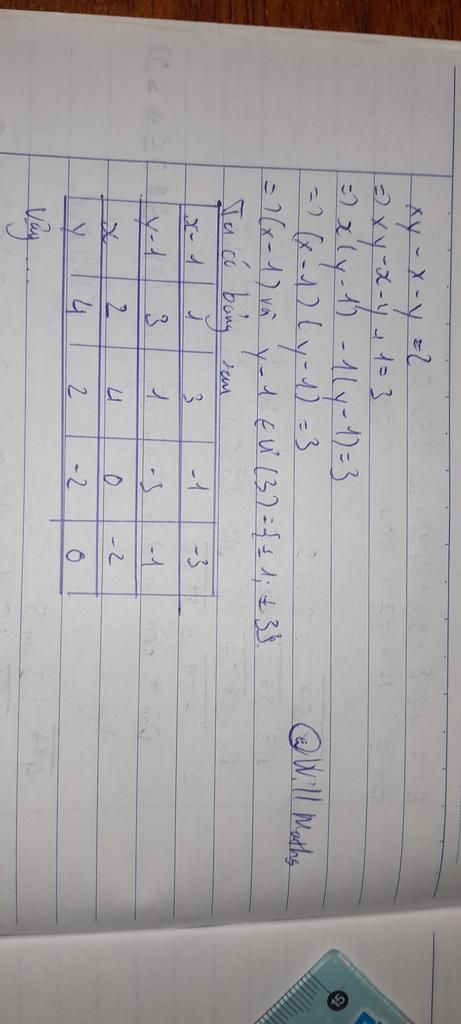 xy - x - y = 2
=> xy - x - y + 1 = 3
=> x(y-1) - 1(y-1) = 3
=> (x-1)(y-1) = 3
=> (x-1) và y-1 ∈ Ư(3) = {±1; ±3}
@Will Maths
Ta có bảng sau
x-1 1 3 -1 -3
y-1 3 1 -3 -1
x 2 4 0 -2
y 4 2 -2 0
Vậy ....
15